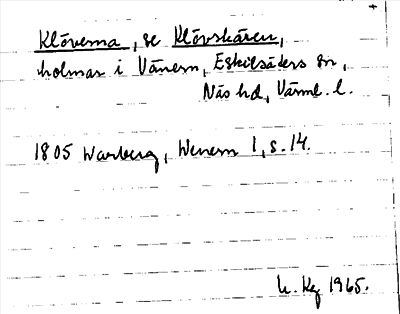 Klöverna, se Klövskären,
holmar i Vänern, Eskilsäters sn,
Näs hd, Värml. l.
1805 Warberg, Wenern 1, s. 14.
h. Kg 1965.